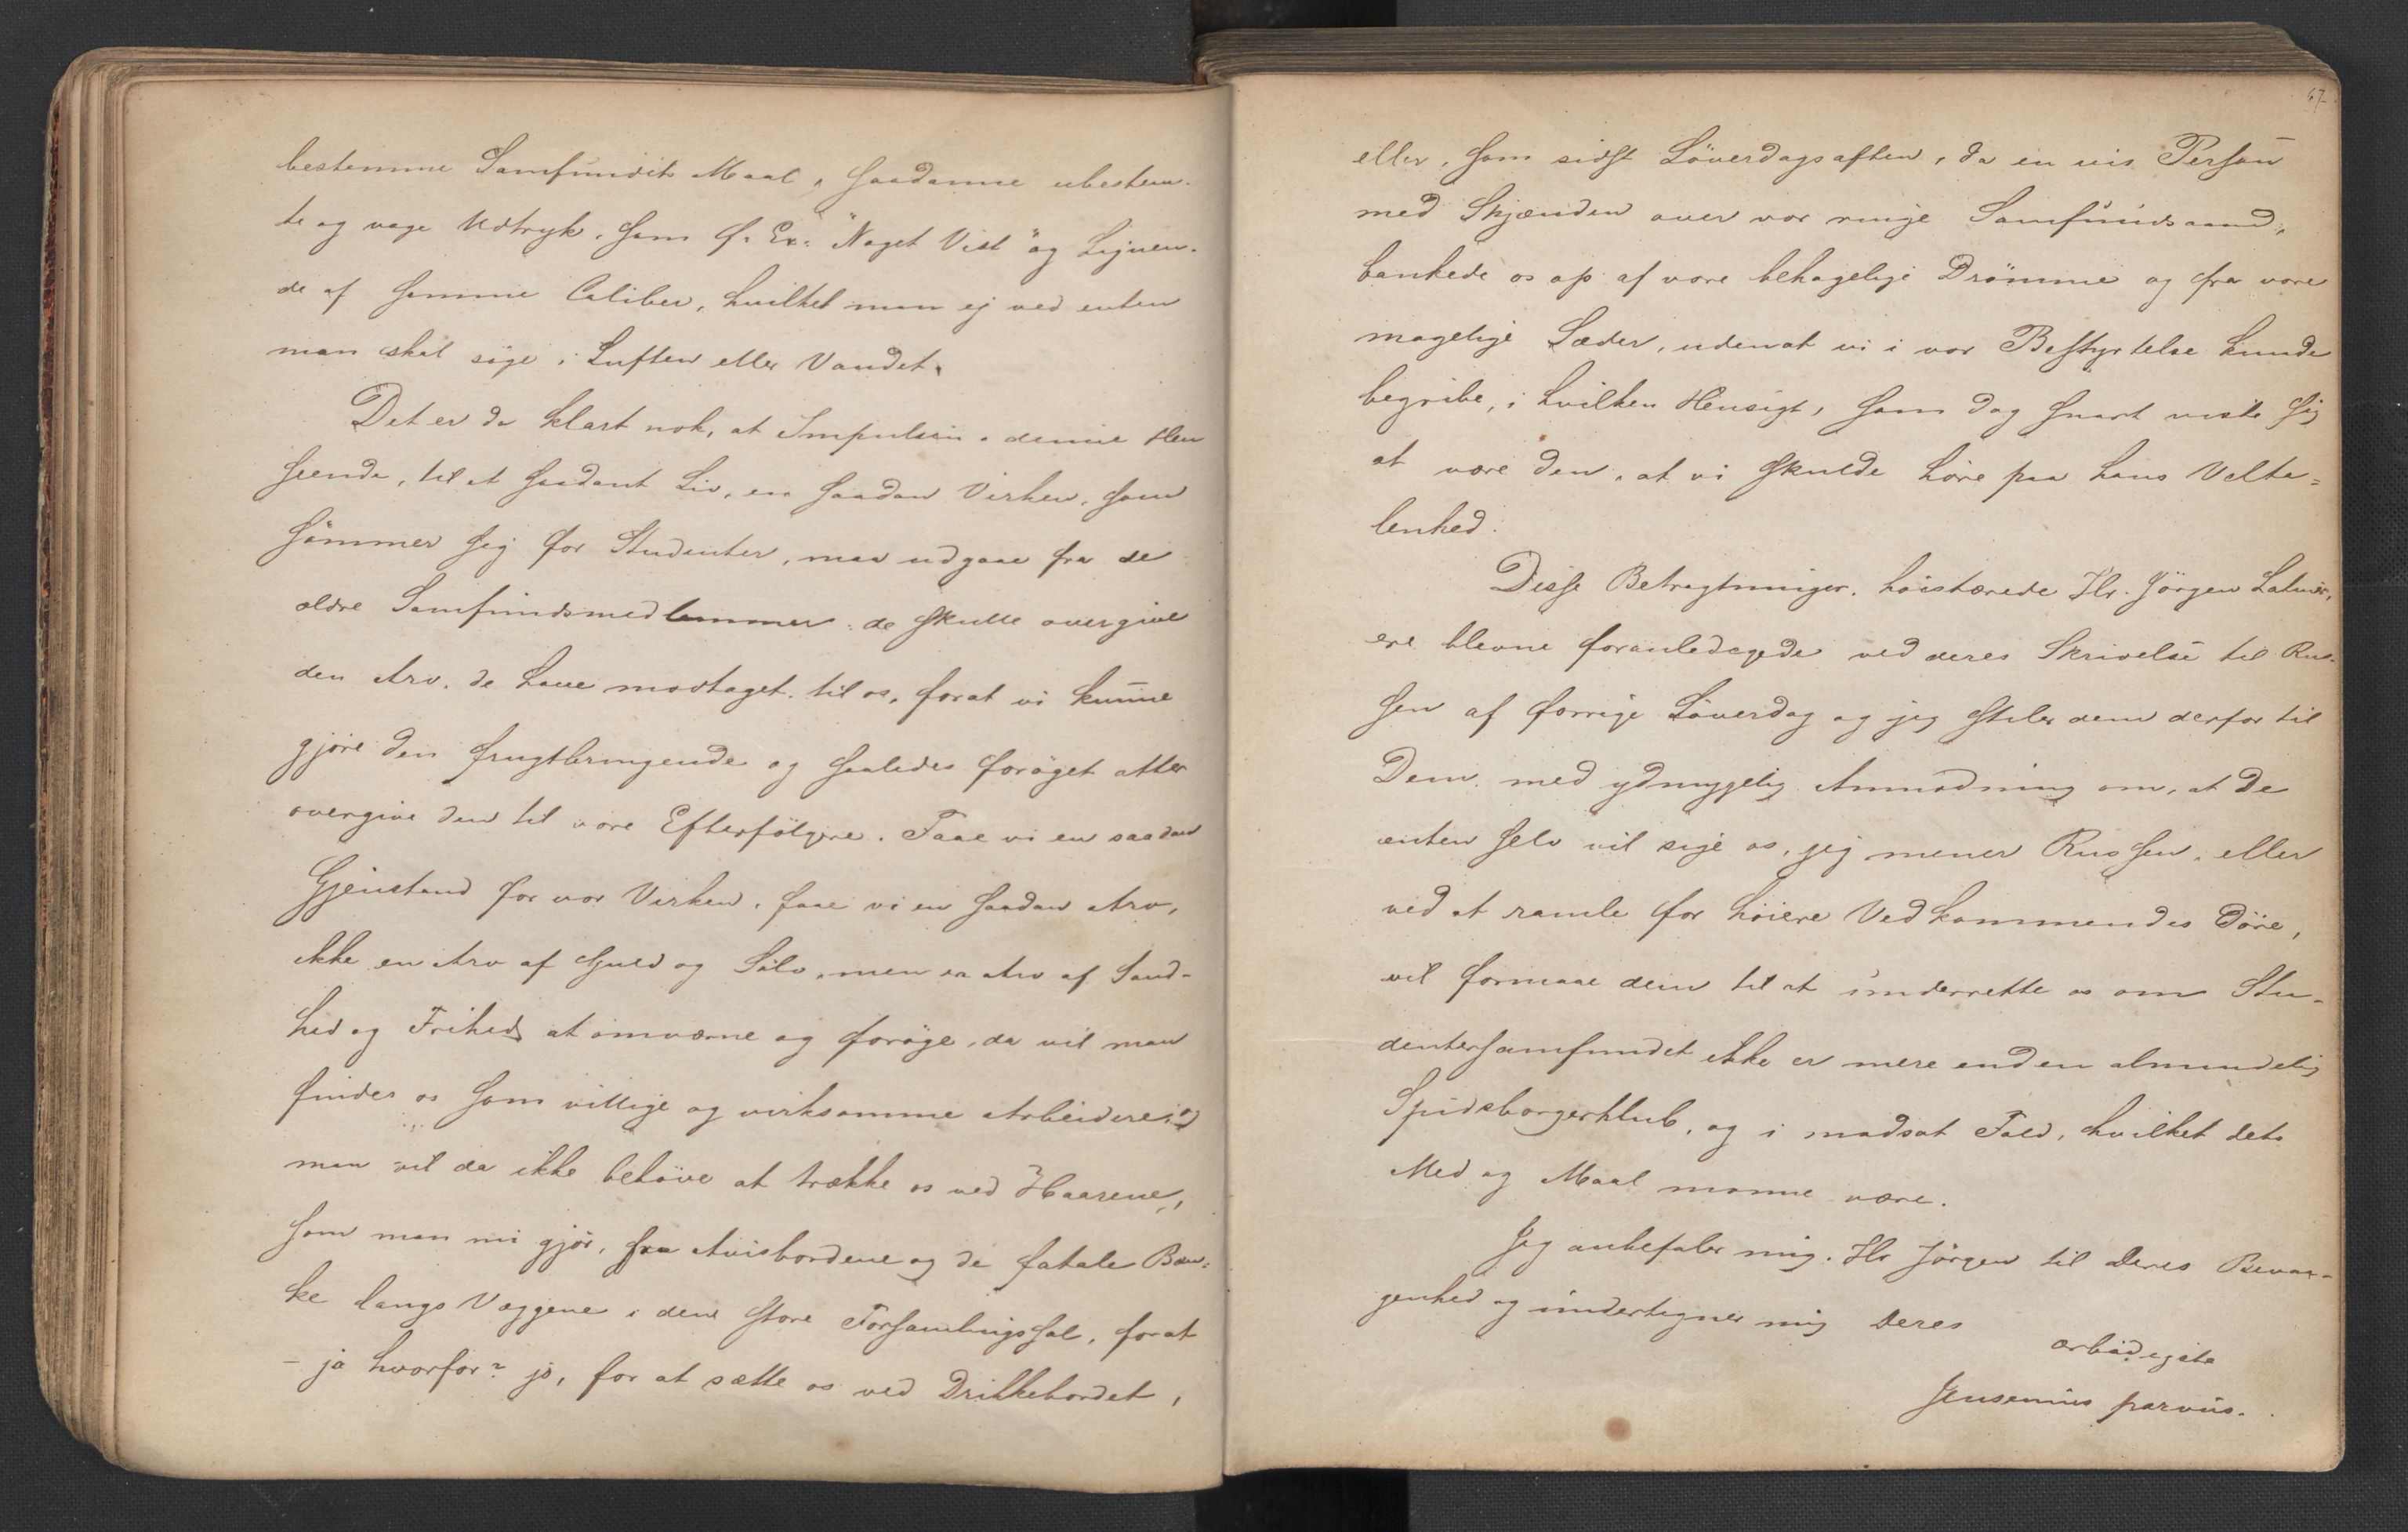 bestemme Samfundets Maal, saadanne ubestem-
te og vage Udtryk, som f. Ex. "Noget Vist" og Lignen-
de af samme Caliber, hvilket man ej ved enten
man skal søge i Luften eller Vandet.
Det er da klart nok, at Impulsen i denne Hen
seende, til et saadant Liv, en saadan Virken, som
sømmer sig for Studenter, maa udgaae fra de
ældre Samfundsmedlemmer: de skulle overgive
den Arv, de have modtaget, til os, forat vi kunne
gjøre den frugtbringende og saaledes forøget atter
overgive den til vore Efterfølgere. Faae vi en saadan
Gjenstand for vor Virken, faae vi en saadan Arv,
ikke en Arv af Guld og Sølv, men en Arv af Sand-
hed og Frihed at omværne og forøge, da vil man
finde os som villige og virksomme Arbeidere; og
man vil da ikke behøve at trække os ved Haarene,
som man nu gjør, fra Avisbordene og de fatale Bæn-
ke langs Væggene i den store Forsamlingssal, forat
- ja hvorfor? jo, for at sætte os ved Drikkebordet,
67.
eller, som sidst Løverdagsaften, da en vis Person
med Skjænden over vor ringe Samfundsaand,
bankede os op af vore behagelige Drømme og fra vore
magelige Sæder, udenat vi i vor Bestyrtelse kunde
begribe, i hvilken Hensigt, som dog snart viste sig
at være den, at vi skulde høre paa hans Velta-
lenhed.
Disse Betragtninger, høistærede Hr. Jørgen Latiner,
ere blevne foranledigede ved deres Skrivelse til Rus-
sen af forrige Løverdag og jeg stiler dem derfor til
Dem, med ydmygelig Anmodning om, at De
enten selv vil sige os, jeg mener Russen, eller
ved at ramle for høiere Vedkommendes Døre,
vil formaae dem til at underrette os om Stu-
dentersamfundet ikke er mere end en almindelig
Spidsborgerklub, og i modsat Fald, hvilket dets
Med og Maal monne være.
Jeg anbefaler mig, Hr Jørgen til Deres Bevaa-
genhed og undertegner mig Deres
ærbødigste
Jensenius parvus.